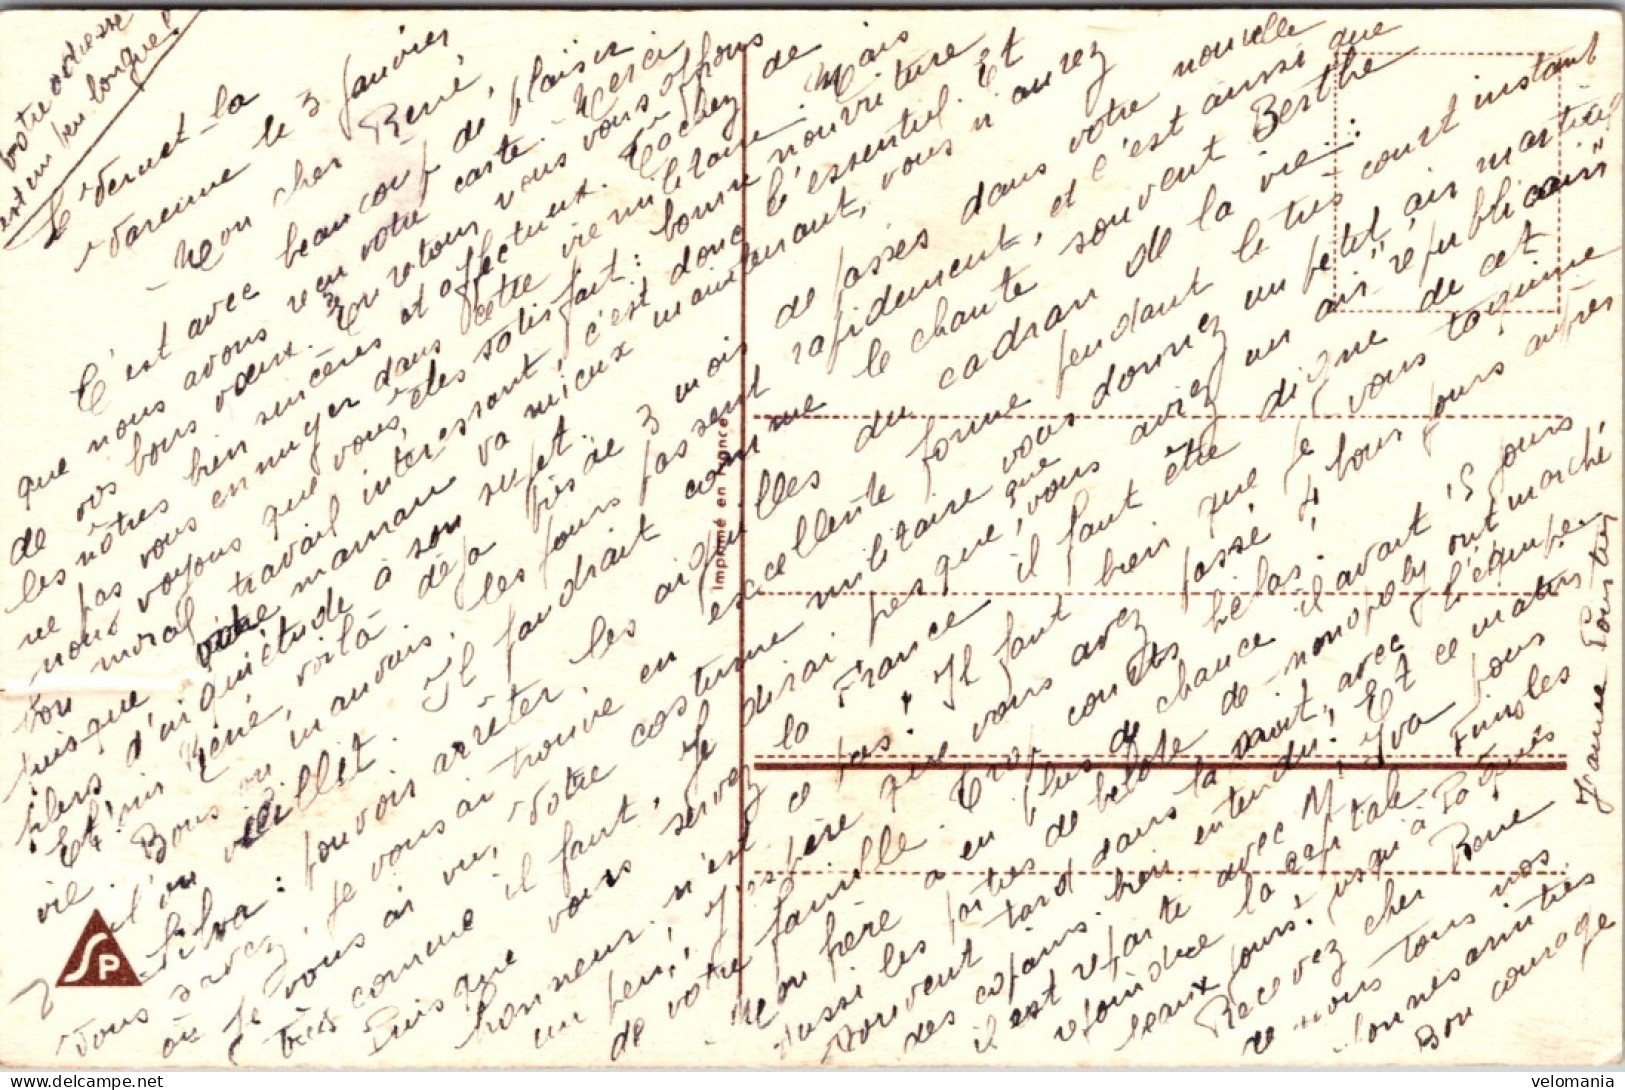 votre adresse
est un peu longue!
Le Vernet-la
Varenne le 3 Janvier
- Mon cher René,
C'est avec beaucoup de plaisir
que nous avons reçu votre carte. Merci
de vos bons vœux. En retour nous vous offrons
les nôtres bien sincères et affectueux. Tâchez de
ne pas vous ennuyer dans cette vie militaire. Mais
nous voyons que vous êtes satisfait: bonne nourriture
bon moral, travail intéressant, c'est donc l'essentiel. Et
puisque votre maman va mieux maintenant, vous n'aurez
plus d'inquiétude à son sujet...
Et puis René, voilà déjà près de 3 mois de passés dans votre nouvelle
vie. Bons ou mauvais, les jours passent rapidement, et c'est ainsi que
l'on vieillit. Il faudrait comme le chante souvent Berthe
Silva: pouvoir arrêter les aiguilles du cadran de la vie...
Vous savez, je vous ai trouvé en excellente forme pendant le très court instant
où je vous ai vu. Votre costume militaire vous donnez un petit air martial
très comme il faut. Je dirai presque que vous aviez un air "républicain"
Puisque vous servez la France il faut être digne de cet
honneur, n'est ce pas! Il faut bien que je vous taquine
un peu! J'espère que vous avez passé 4 bons jours auprès
de votre famille. Trop courts hélas!
Mon frère a eu plus de chance il avait 15 jours
Aussi les parties de belote, de monopoly ont marché
souvent tard dans la nuit, avec l'équipe
des copains bien entendu! Et ce matin
il est reparti avec M. Iva pour
rejoindre la capitale. Finis les
beaux jours! jusqu'à Pâques
Recevez cher René
de nous tous nos
bonnes amitiés
Bon courage
Jeanne
Imprimé en France
SP
velomania